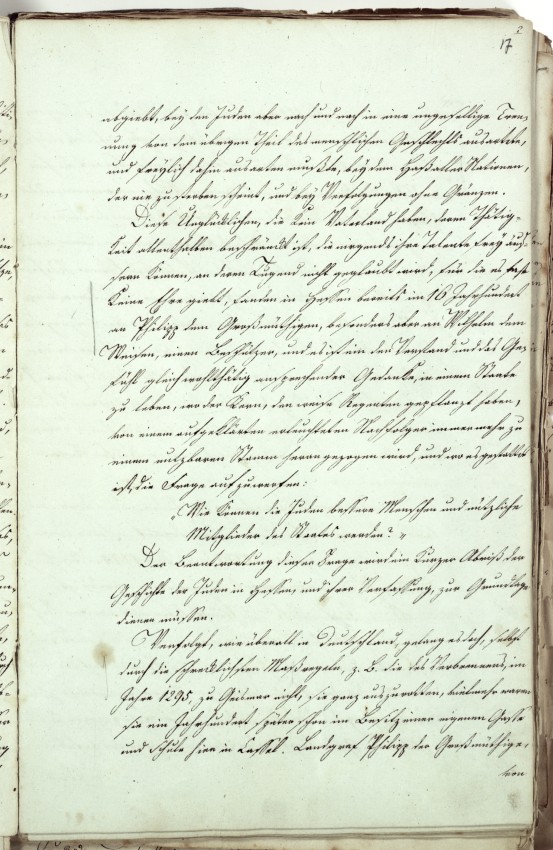 2
17
abgiebt, bey den Juden aber nach und nach in eine ungesellige Tren-
nung von dem übrigen Theil des menschlichen Geschlechts ausartete,
und freylich dahin ausarten mußte, bey dem Haß aller Nationen,
der nie zu sterben scheint, und bey Verfolgungen ohne Gränzen.
Diese Unglücklichen, die kein Vaterland haben, deren Thätig-
keit allenthalben beschränkt ist, die nirgends ihre Talente frey äus-
sern können, an deren Tugend nicht geglaubt wird, für die es fast
keine Ehre giebt, fanden in Hessen bereits im 16 Jahrhundert
an Philipp dem Großmüthigen, besonders aber an Wilhelm dem
Weisen, einen Beschützer, und es ist ein den Verstand und das Ge-
fühl gleich wohlthätig ansprechender Gedanke, in einem Staate
zu leben, wo der Kern, den weise Regenten gepflanzt haben,
von einem aufgeklärten erleuchteten Nachfolger immer mehr zu
einem nutzbaren Stamm herangezogen wird, und wo es gestattet
ist, die Frage aufzuwerfen:
„Wie können die Juden bessere Menschen und nützliche
Mitglieder des Staates werden?„
Der Beantwortung dieser Frage wird ein kurzer Abriß der
Geschichte der Juden in Hessen, und ihrer Verfassung, zur Grundlage
dienen müssen.
Verfolgt, wie überall in Deutschland, gelang es doch, selbst
durch die schrecklichsten Maßregeln, z. B. die des Verbrennens, im
Jahre 1295, zu Geismar nicht, sie ganz auszurotten, vielmehr waren
sie ein Jahrhundert später schon im Besitz einer eigenen Gasse
und Schule hier in Cassel. Landgraf Philipp der Großmüthige,
von